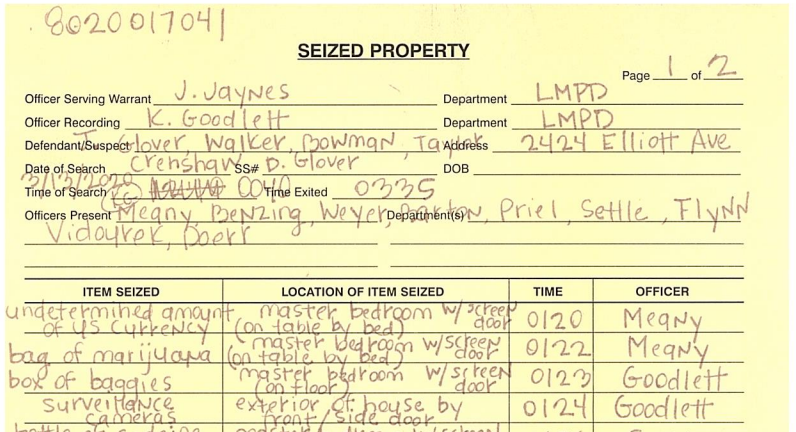 8020017041
SEIZED PROPERTY
Page 1 of 2
Officer Serving Warrant J. Jaynes Department LMPD
Officer Recording K. Goodlett Department LMPD
Defendant/Suspect J. Glover, Walker, Bowman, Taylor Address 2424 Elliott Ave
Date of Search Crenshaw SS# D. Glover DOB
3/13/2020
Time of Search KG 0040 Time Exited 0335
Officers Present Meany, Benzing, Weyer, Barton, Department(s) Priel, Settle, Flynn
Vidourek, Doerr
ITEM SEIZED LOCATION OF ITEM SEIZED TIME OFFICER
undetermined amount of US currency master bedroom w/screen door (on table by bed) 0120 Meany
bag of marijuana master bedroom w/screen door (on table by bed) 0122 Meany
box of baggies master bedroom w/screen door (on floor) 0123 Goodlett
surveillance cameras exterior of house by front/side door 0124 Goodlett